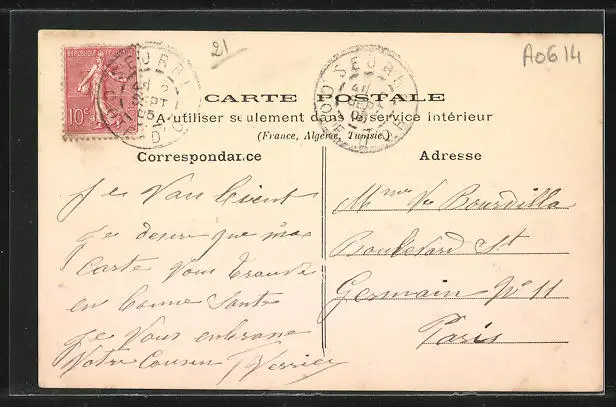 21
A0614
REPUBLIQUE FRANCAISE
10c
SEURRE
SEPT
05
CÔTE D'OR
SEURRE
SEPT
05
CÔTE D'OR
CARTE POSTALE
A utiliser seulement dans le service intérieur
(France, Algérie, Tunisie.)
Correspondance
Adresse
Je
Je desire que ma
Carte Vous trouve
en bonne Sante
Je Vous embrasse
Votre Cousin Verrier
Mme Ve Bourdillo
Boulevard St
Germain No 11
Paris